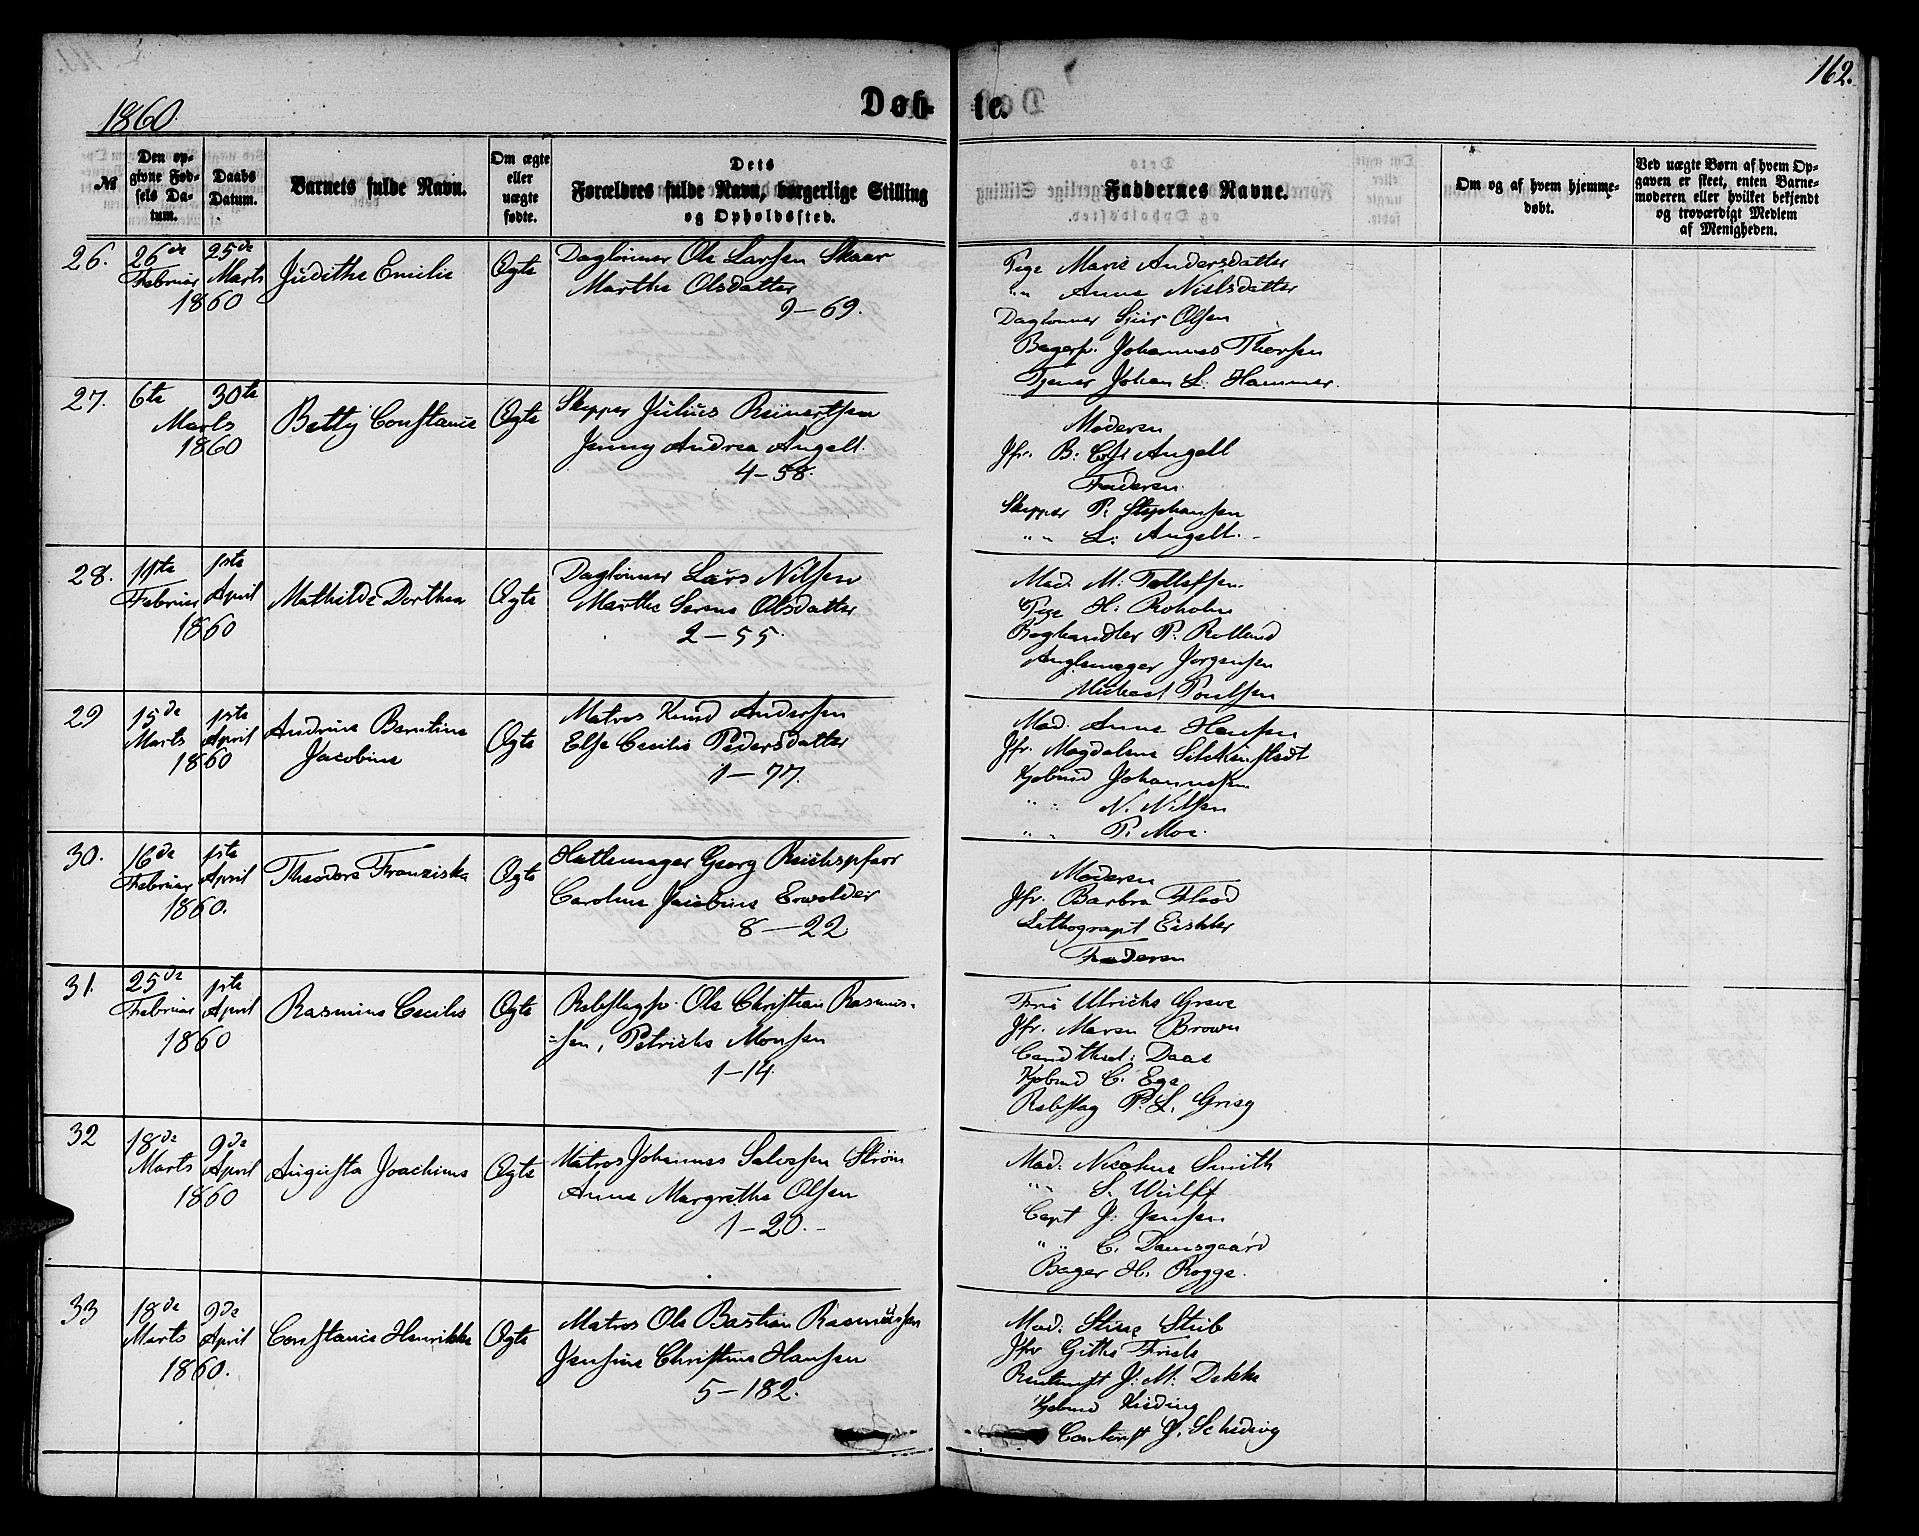 162.
1860
Døb- te.
№
Den opgivne Fødsels Datum.
Daabs Datum.
Barnets fulde Navn.
Om ægte eller uægte fødte.
Dets Forældres fulde Navn, borgerlige Stilling og Opholdssted.
Faddernes Navne.
Om og af hvem hjemmedøbt.
Ved uægte Børn af hvem Opgaven er skeet, enten Barnemoderen eller hvilket bekjendt og troværdigt Medlem af Menigheden.
26. 26de Februar 25de Marts 1860
Judithe Emilie
Ægte
Daglønner Ole Larsen Skaar
Marthe Olsdatter
9-69.
Pige Marie Andersdatter
" Anna Nielsdatter
Daglønner Sjur Olsen
Bagersv. Johannes Thorsen
Tjener Johan L. Hammer.
27. 6te 30te Marts 1860
Betty Constance
Ægte
Skipper Julius Reinertsen
Jenny Andrea Angell.
4-58.
Moderen
Jfr. B: Angell
Faderen
Skipper P. Stephansen
" L: Angell.
28. 11te Februar 1ste April 1860
Mathilde Dorthea
Ægte
Daglønner Lars Nilsen
Marthe Serene Olsdatter
2-55.
Mad. M: Tollefsen
Pige H: Roholm
Boghandler P. Rolland
Jørgensen
Michael Poulsen
29 15de Marts 1ste April 1860
Andrine Berntine
Jacobine
Ægte
Matros Knud Andersen
Else Cecilie Pedersdatter
1-77.
Mad. Anne Hansen
Jfr. Magdalene
Kjøbmd Johannesen
" N. Nilsen
" P. Moe.
30. 16de Februar 1ste April 1860.
Theodora Franziska
Ægte
Hattemager Georg Reichspfarr
Caroline Jacobine
8-22
Moderen
Jfr. Barbra Flood
Lithograpt
Faderen
31. 25de Februar 1ste April 1860
Rasmine Cecilie
Ægte
Rebslagsv. Ole Christian Rasmus-
=sen, Petriche Monsen
1-14.
Fru Ulriche Greve
Jfr. Maren Brown
Cand theol: Daae
Kjøbmd C. Ege
Rebslag P. L. Grieg
32 18de Marts 9de April 1860
Augusta Joachime
Ægte
Matros Johannes Salvesen Strøm
Anne Margrethe Olsen
1-20.-
Mad. Nicoline Smith
" S. Wulff
Capt J: Jensen
" C. Damsgaard
Bager H. Rogge.
33 18de Marts 9de April 1860.
Constance Henrikke
Ægte
Matros Ole Bastian Rasmussen
Jensine Christine Hansen
5-182.
Mad. Stine Stub
Jfr Githe Friele
J: M: Dekke
Kjøbmd Kieding
J. Schiøtz